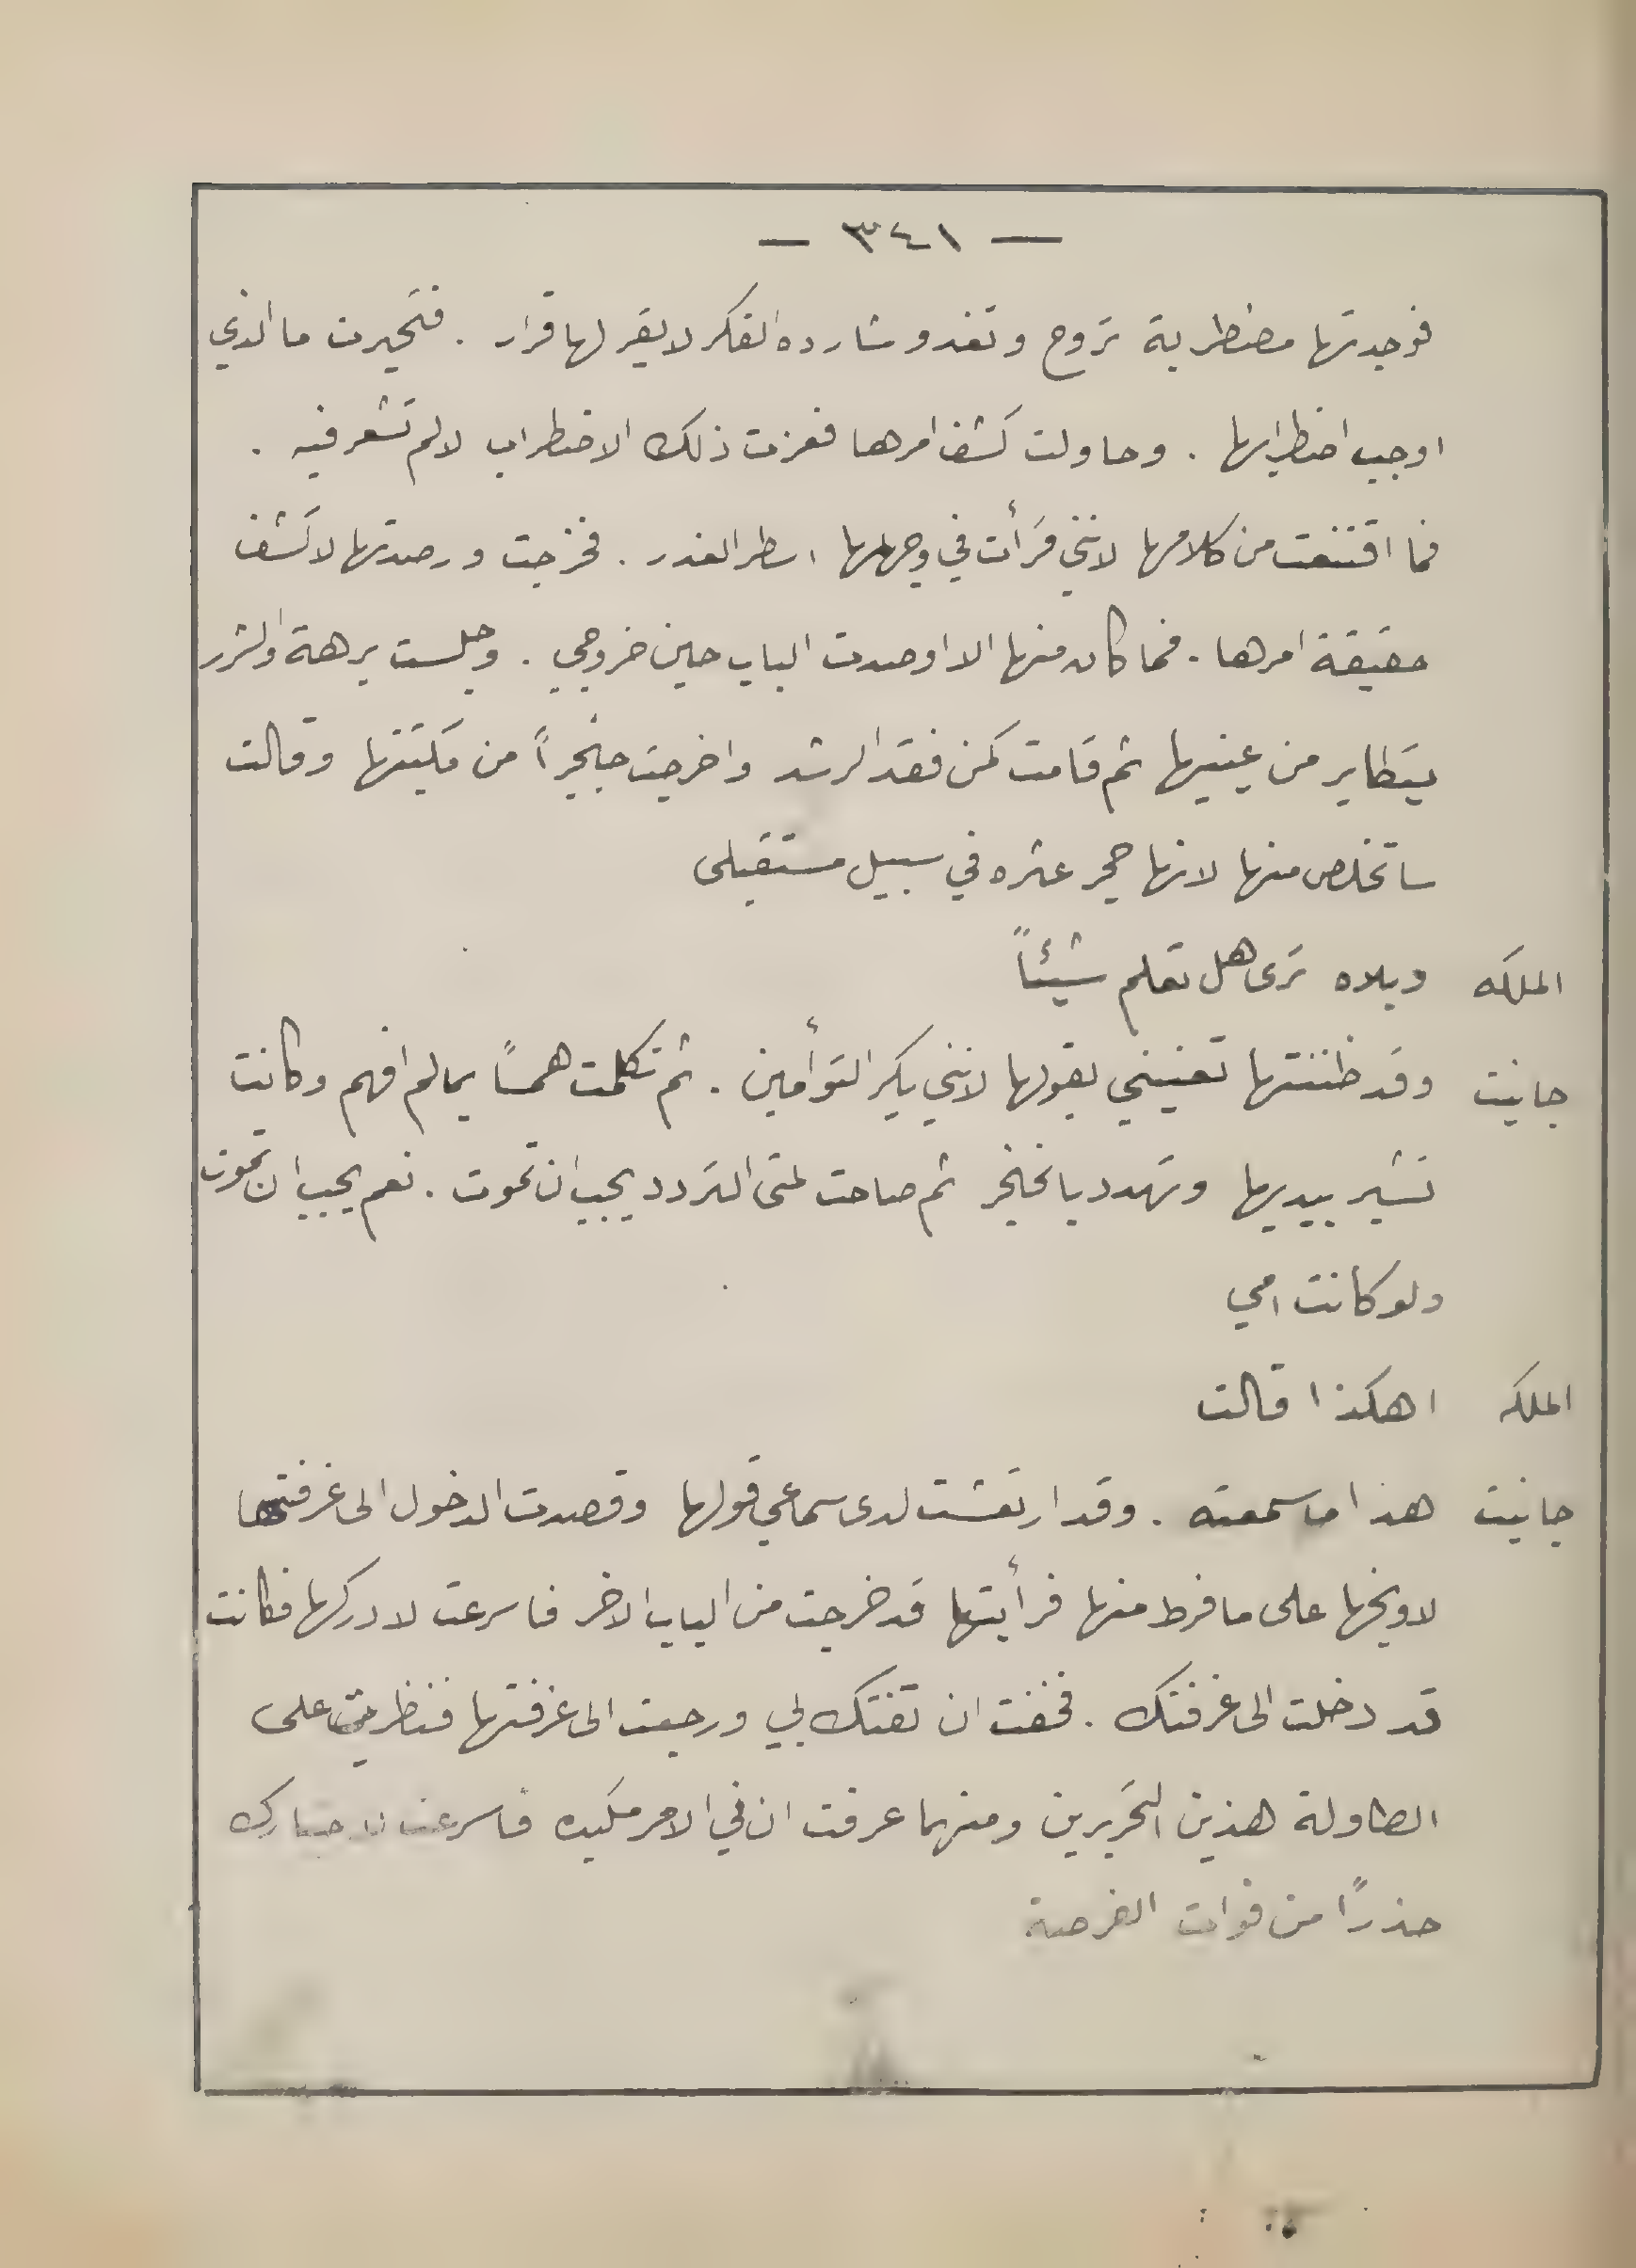 — ٣٤١ —
فوجدتها مضطربة تروح وتغدو شارده الفكر لا يقر لها قرار . فتحيرت ما الذي
اوجب اضطرابها . وحاولت كشف امرها فعزت ذلك الاضطراب لالم تشعر فيه .
فما اقتنعت من كلامها لانني قرأت في وجهها اسطر الغدر . فخرجت ورصدتها لاكشف
حقيقة امرها . فما كان منها الا اوصدت الباب حين خروجي . وجلست برهة والشرر
يتطاير من عينيها ثم قامت كمن فقد الرشد واخرجت خنجراً من مكتبتها وقالت
ساتخلص منها لانها حجر عثره في سبيل مستقبلى
الملكه ويلاه ترى هل تعلم شيئاً
جانيت وقد ظننتها تعنيني بقولها لانني بكر التوأمين . ثم تكلمت همساً بمالم افهم وكانت
تشير بيديها وتهدد بالخنجر ثم صاحت لمتى التردد يجب ان تموت . نعم يجب ان تموت
ولو كانت امي
الملكه اهكذا قالت
جانيت هذا ما سمعته . وقد ارتعشت لدى سماعي قولها وقصدت الدخول الى غرفتها
لاوبخها على ما فرط منها فرأيتها قد خرجت من الباب الاخر فاسرعت لادركها فكانت
قد دخلت الى غرفتك . فخفت ان تفتك بي ورجعت الى غرفتها فنظرت على
الطاولة هذين التحريرين ومنهما عرفت ان في الامر مكيده فاسرعت لاخبارك
حذرًا من فوات الفرصة